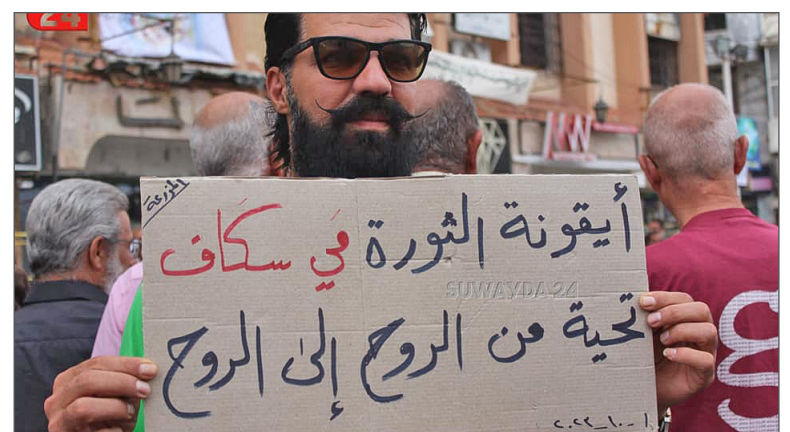 24
المزرعة
أيقونة الثورة مَي سكَاف
SUWAYDA 24
تحية من الروح إلى الروح